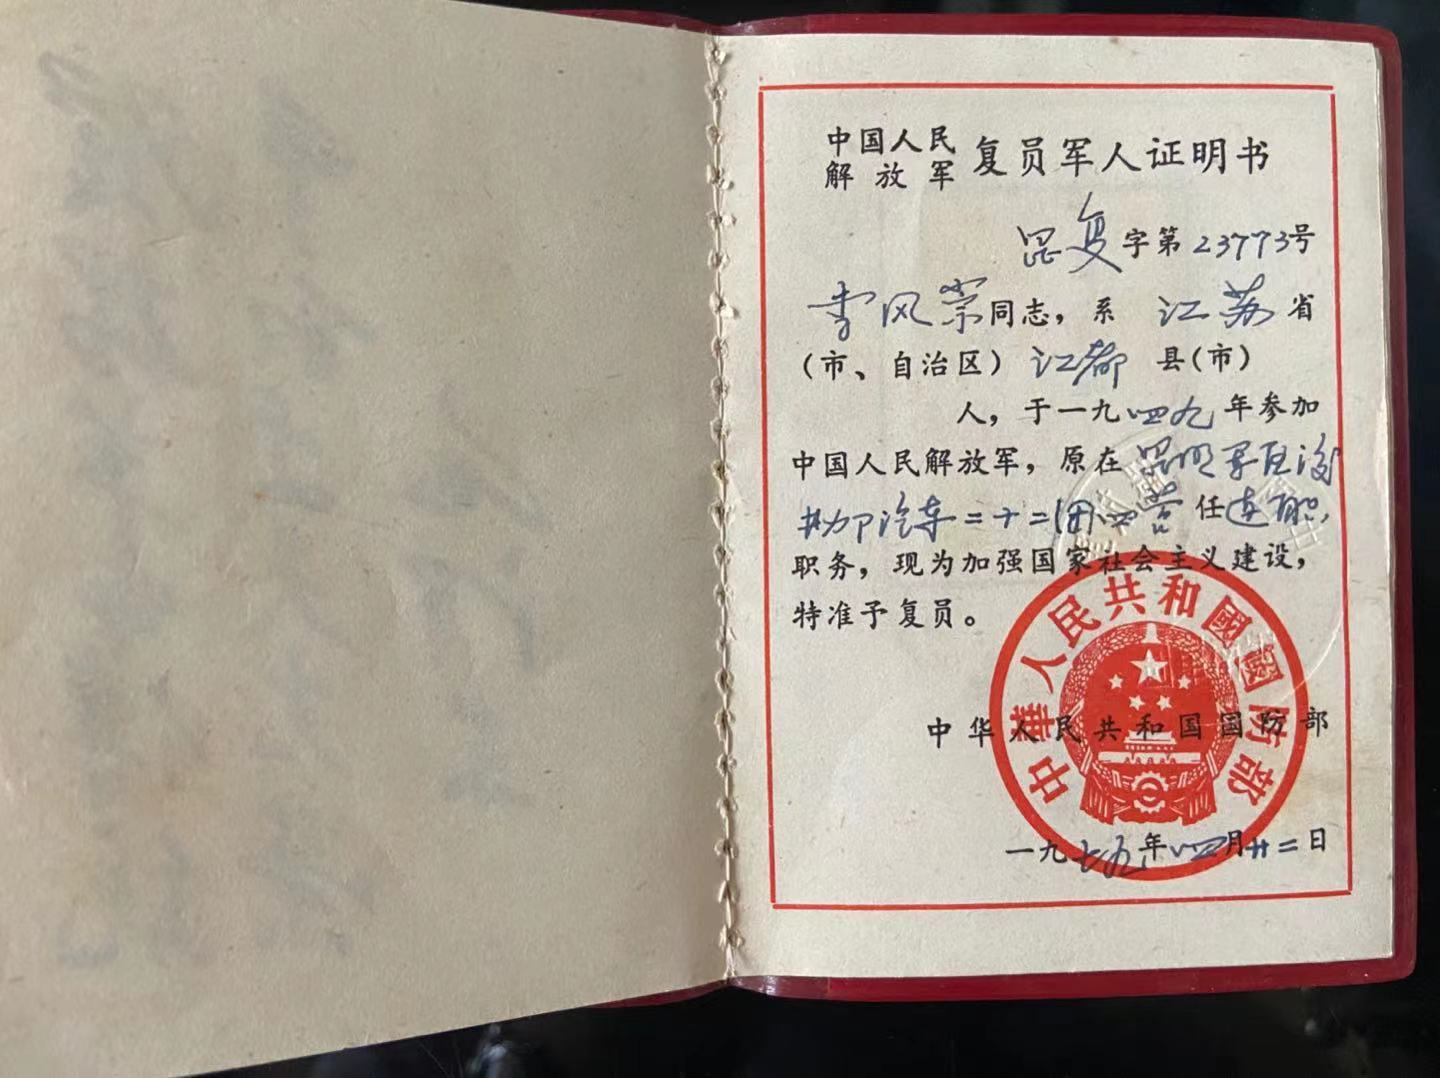 中国人民
解放军 复员军人证明书
昆复字第23773号
李风崇同志，系 江苏 省
（市、自治区）江都 县(市)
人，于一九四九年参加
中国人民解放军，原在昆明军区后
勤部汽车二十二团四营任连职
职务，现为加强国家社会主义建设，
特准予复员。
中华人民共和国国防部
中華人民共和國國防部
一九七九年四月廿二日